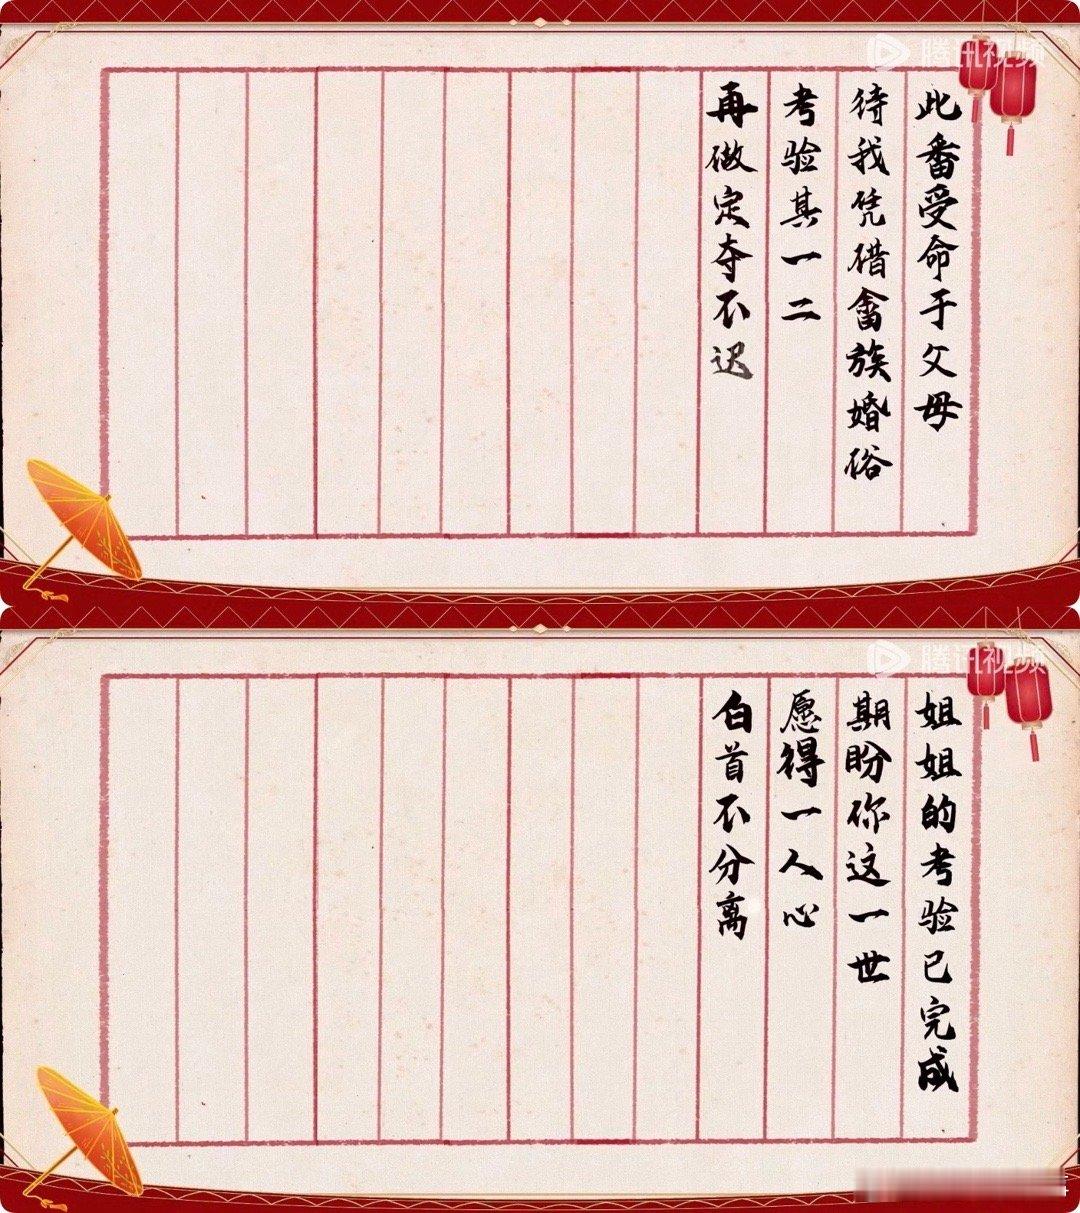 腾讯视频
此番受命于父母
待我凭借畲族婚俗
考验其一二
再做定夺不迟
腾讯视频
姐姐的考验已完成
期盼你这一世
愿得一人心
白首不分离